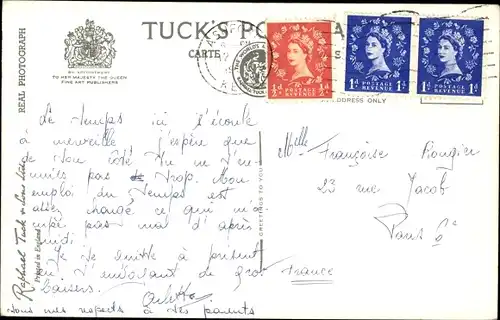 REAL PHOTOGRAPH
BY APPOINTMENT
TO HER MAJESTY THE QUEEN
FINE ART PUBLISHERS
TUCK'S PO
CARTE
ADDRESS ONLY
½d POSTAGE REVENUE ½d
1d POSTAGE REVENUE 1d
1d POSTAGE REVENUE 1d
Le temps ici s'écoule
à merveille j'espère que
de ton côté tu ne t'en-
nuies pas trop. Mon
emploi du temps est
assez changé ce qui m'oc-
cupe pas mal d'après
midi.
Je te quitte à présent
en t'embrassant de gros
baisers.
tous mes respects à tes parents
Melle Françoise Rougier
23 rue Jacob
Paris 6e
France
GREETINGS TO YOU
Raphael Tuck & Sons Ltd.
Printed in England